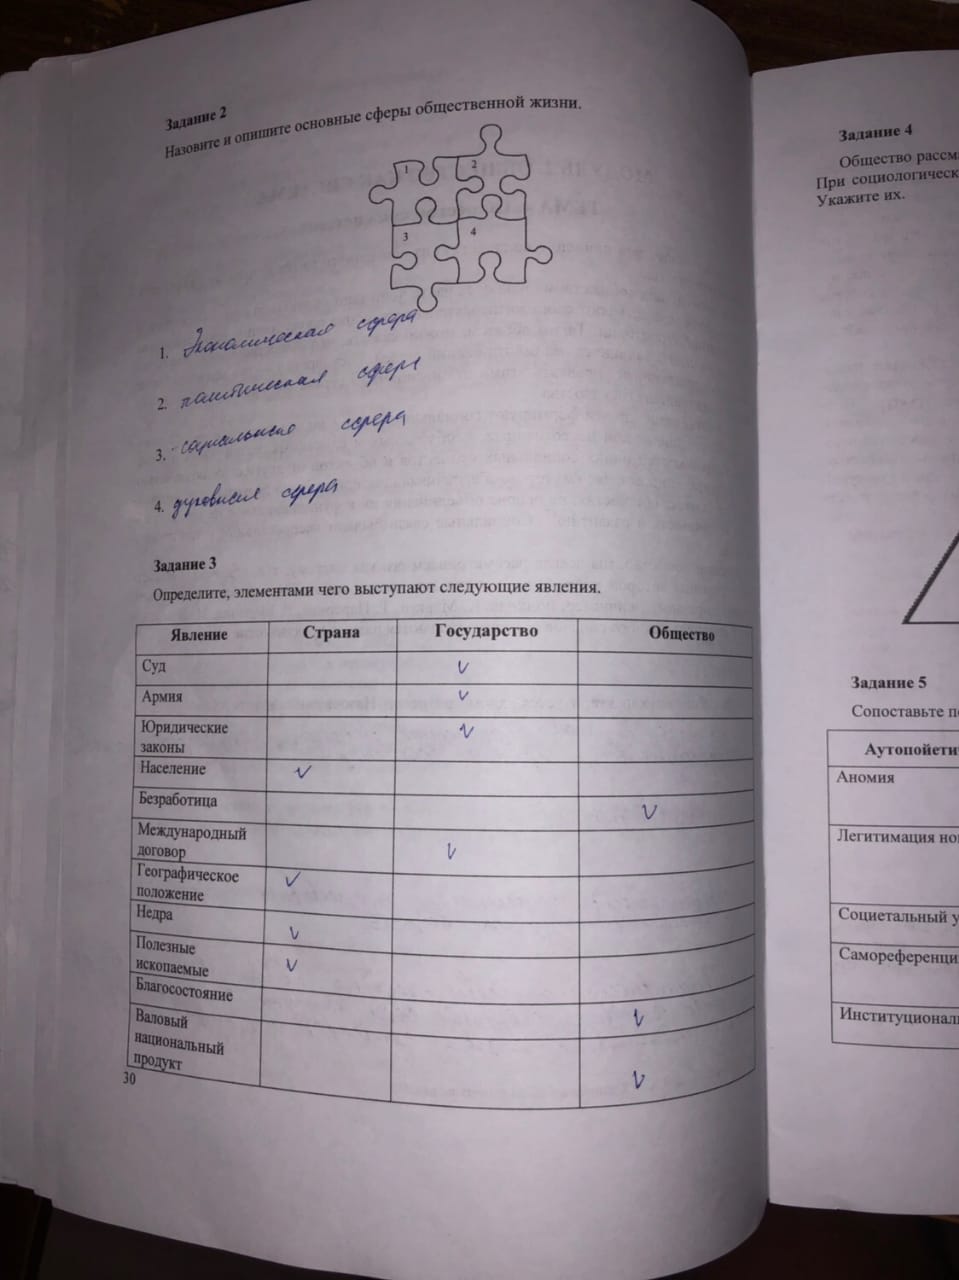 Задание 2
Назовите и опишите основные сферы общественной жизни.
1
2
3
4
1. Экономическая сфера
2. политическая сфера
3. социальная сфера
4. духовная сфера
Задание 3
Определите, элементами чего выступают следующие явления.
Явление Страна Государство Общество
Суд
Армия
Юридические
законы
Население
Безработица
Международный
договор
Географическое
положение
Недра
Полезные
ископаемые
Благосостояние
Валовый
национальный
продукт
30
Задание 4
Общество
При
Укажите их.
Задание 5
Сопоставьте
Аномия
Легитимация
Социетальный